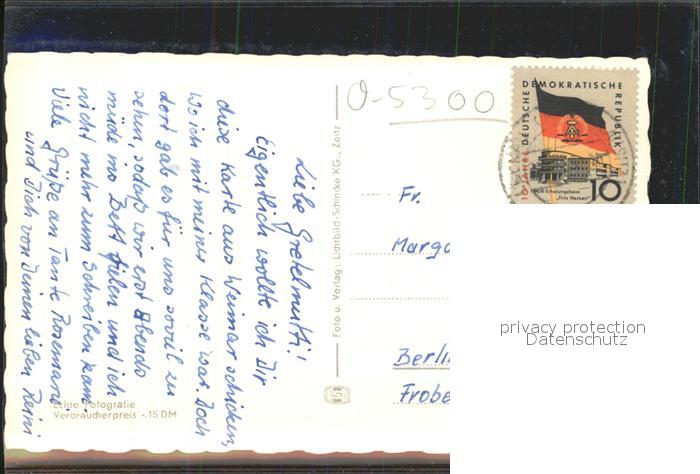 Liebe Gretelmutti!
Eigentlich wollte ich Dir
diese Karte aus Weimar schicken,
wo ich mit meiner Klasse war. Doch
dort gab es für uns soviel zu
sehn, sodaß wir erst Abends
müde ins Bett fielen und ich
nicht mehr zum Schreiben kam.
Viele Grüße an Tante Rosemarie
und Dich von Deinem lieben Reini
Echte Fotografie
Verbraucherpreis -.15 DM
Foto u. Verlag: Lichtbild-Schincke KG., Zeitz
O-5300
10 JAHRE DEUTSCHE DEMOKRATISCHE REPUBLIK
FDGB-Erholungsheim
"Fritz Heckert"
10
Fr.
Marga
Berlin
Frobe
privacy protection
Datenschutz